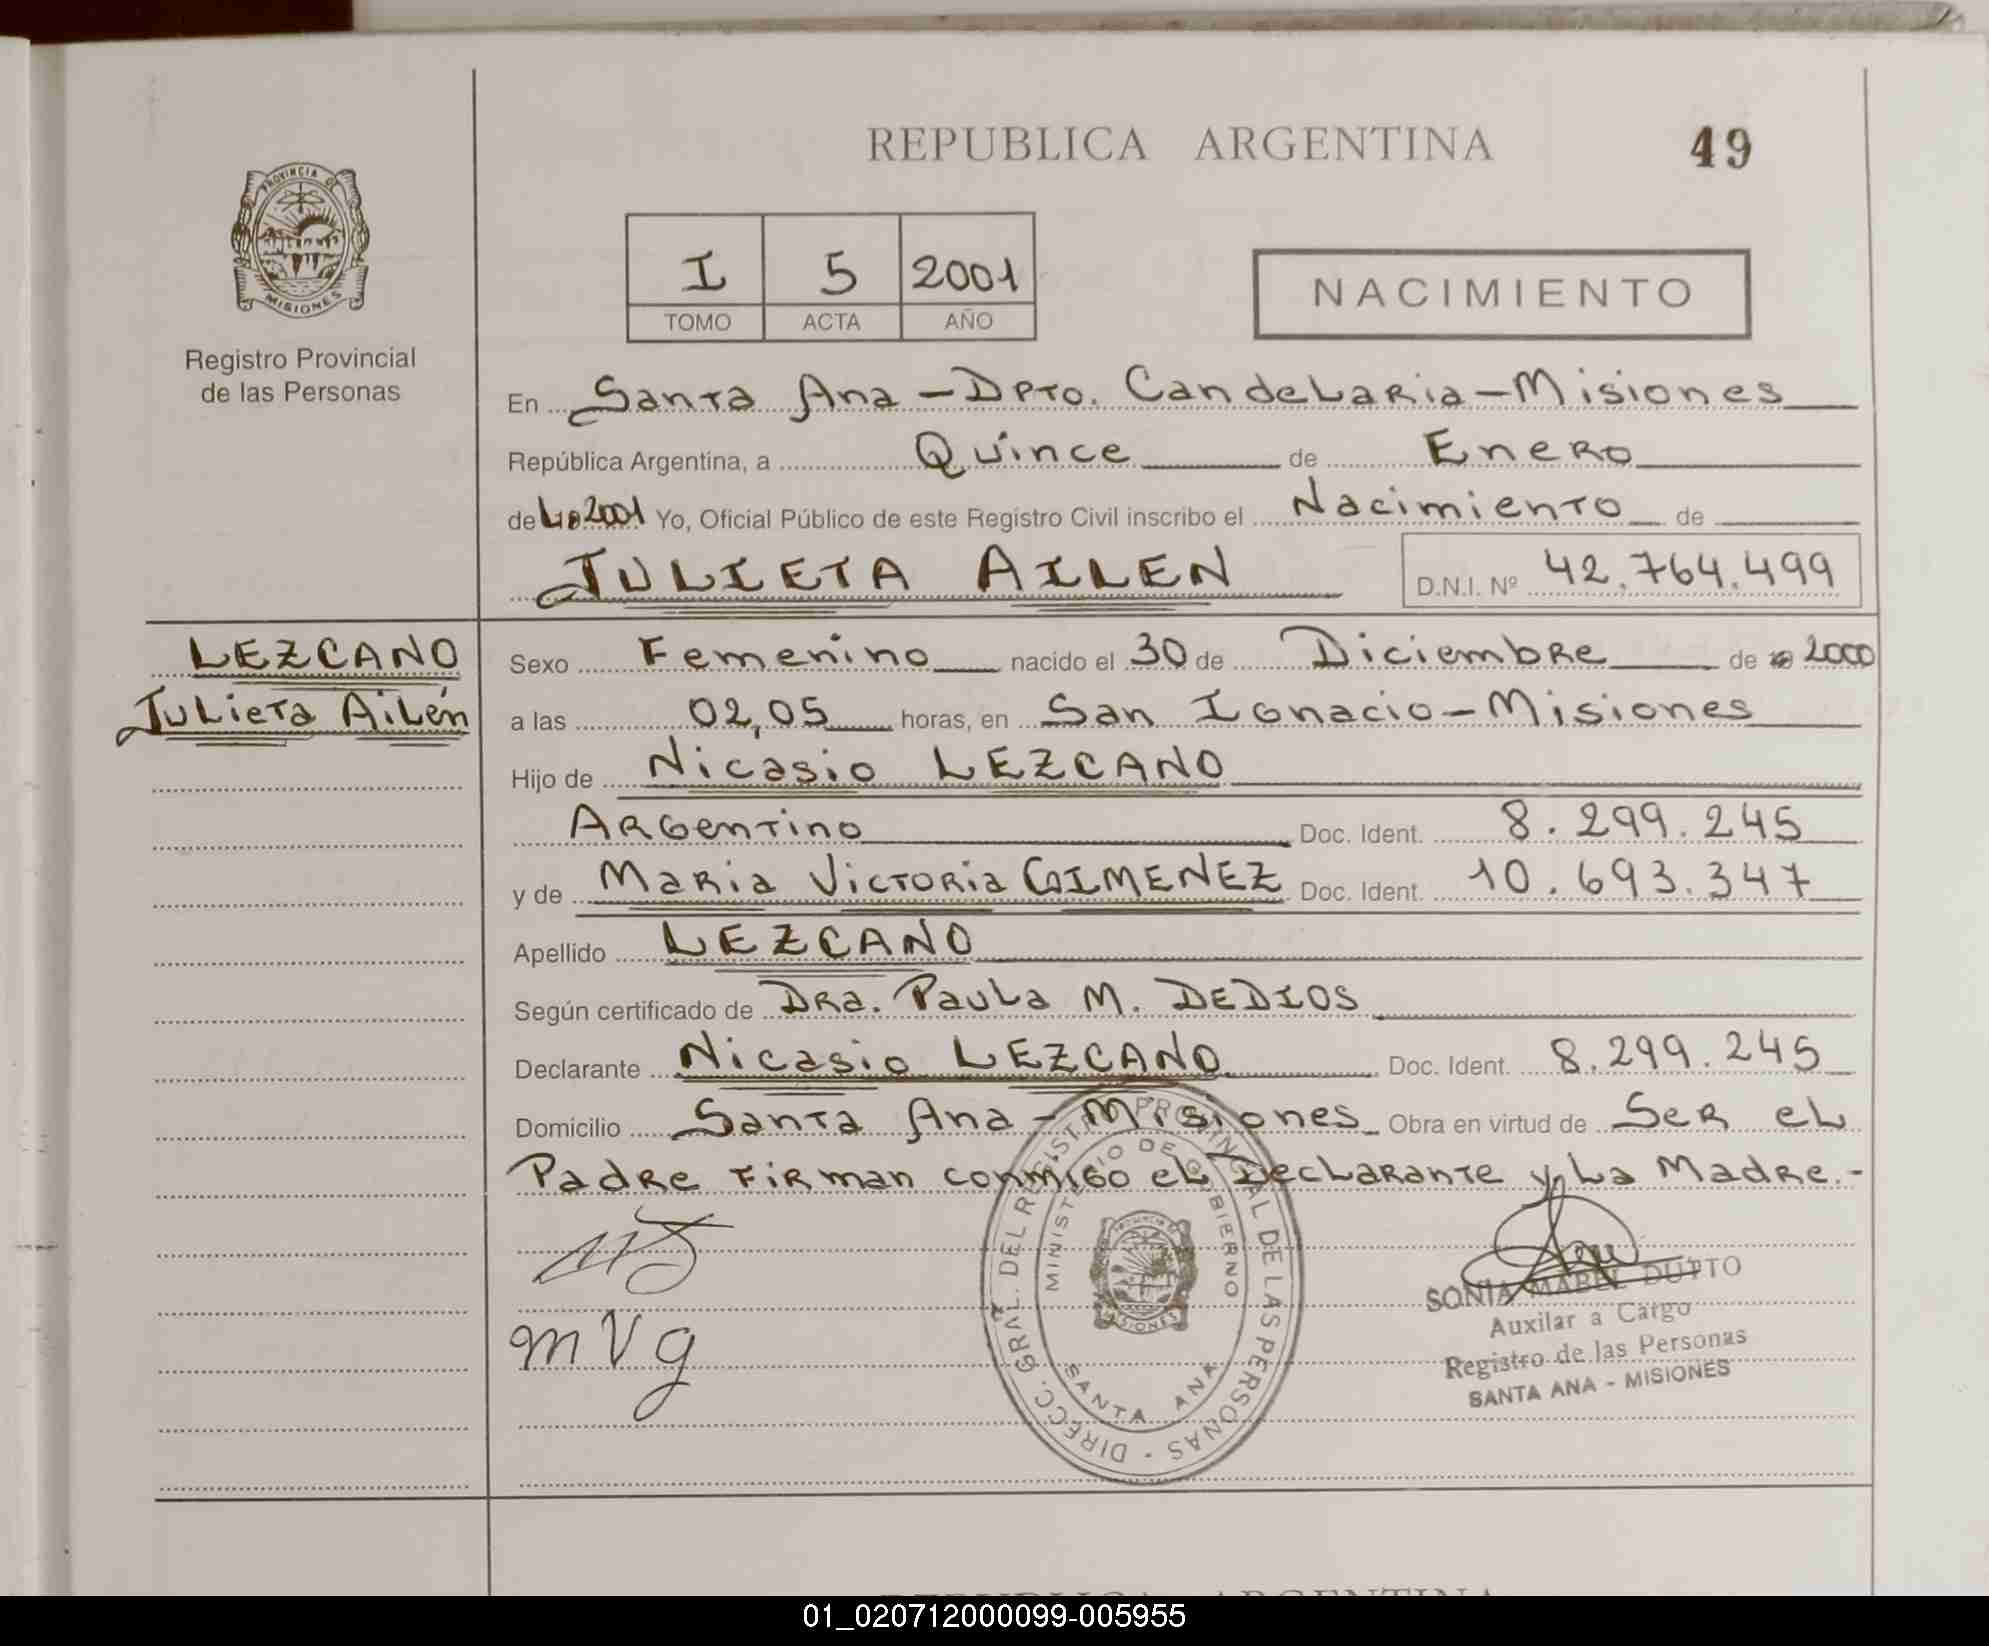 REPUBLICA ARGENTINA
49
PROVINCIA DE
MISIONES
Registro Provincial
de las Personas
I 5 2001
TOMO ACTA AÑO
NACIMIENTO
En Santa Ana - Dpto. Candelaria - Misiones
República Argentina, a Quince de Enero
del 2001 Yo, Oficial Público de este Registro Civil inscribo el Nacimiento de
JULIETA AILEN D.N.I. Nº 42.764.499
LEZCANO
Julieta Ailén
Sexo Femenino nacido el 30 de Diciembre de 2000
a las 02,05 horas, en San Ignacio - Misiones
Hijo de Nicasio LEZCANO
Argentino Doc. Ident. 8.299.245
y de Maria Victoria GIMENEZ Doc. Ident. 10.693.347
Apellido LEZCANO
Según certificado de Dra. Paula M. DEDIOS
Declarante Nicasio LEZCANO Doc. Ident. 8.299.245
Domicilio Santa Ana - Misiones Obra en virtud de Ser el
Padre Firman conmigo el Declarante y La Madre.-
DIRECC. GRAL. DEL REGISTRO PROVINCIAL DE LAS PERSONAS -
MINISTERIO DE GOBIERNO
SANTA ANA
mVg
SONIA MABEL DUTTO
Auxilar a Cargo
Registro de las Personas
SANTA ANA - MISIONES
REPUBLICA ARGENTINA
01_020712000099-005955